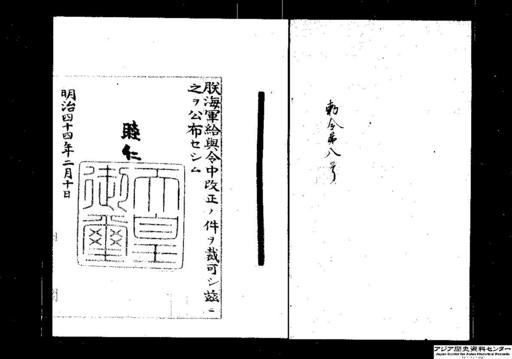 勅令第八号
朕海軍給與令中改正ノ件ヲ裁可シ茲ニ
之ヲ公布セシム
睦仁
天皇御璽
明治四十四年二月十日
アジア歴史資料センター
Japan Center for Asian Historical Records